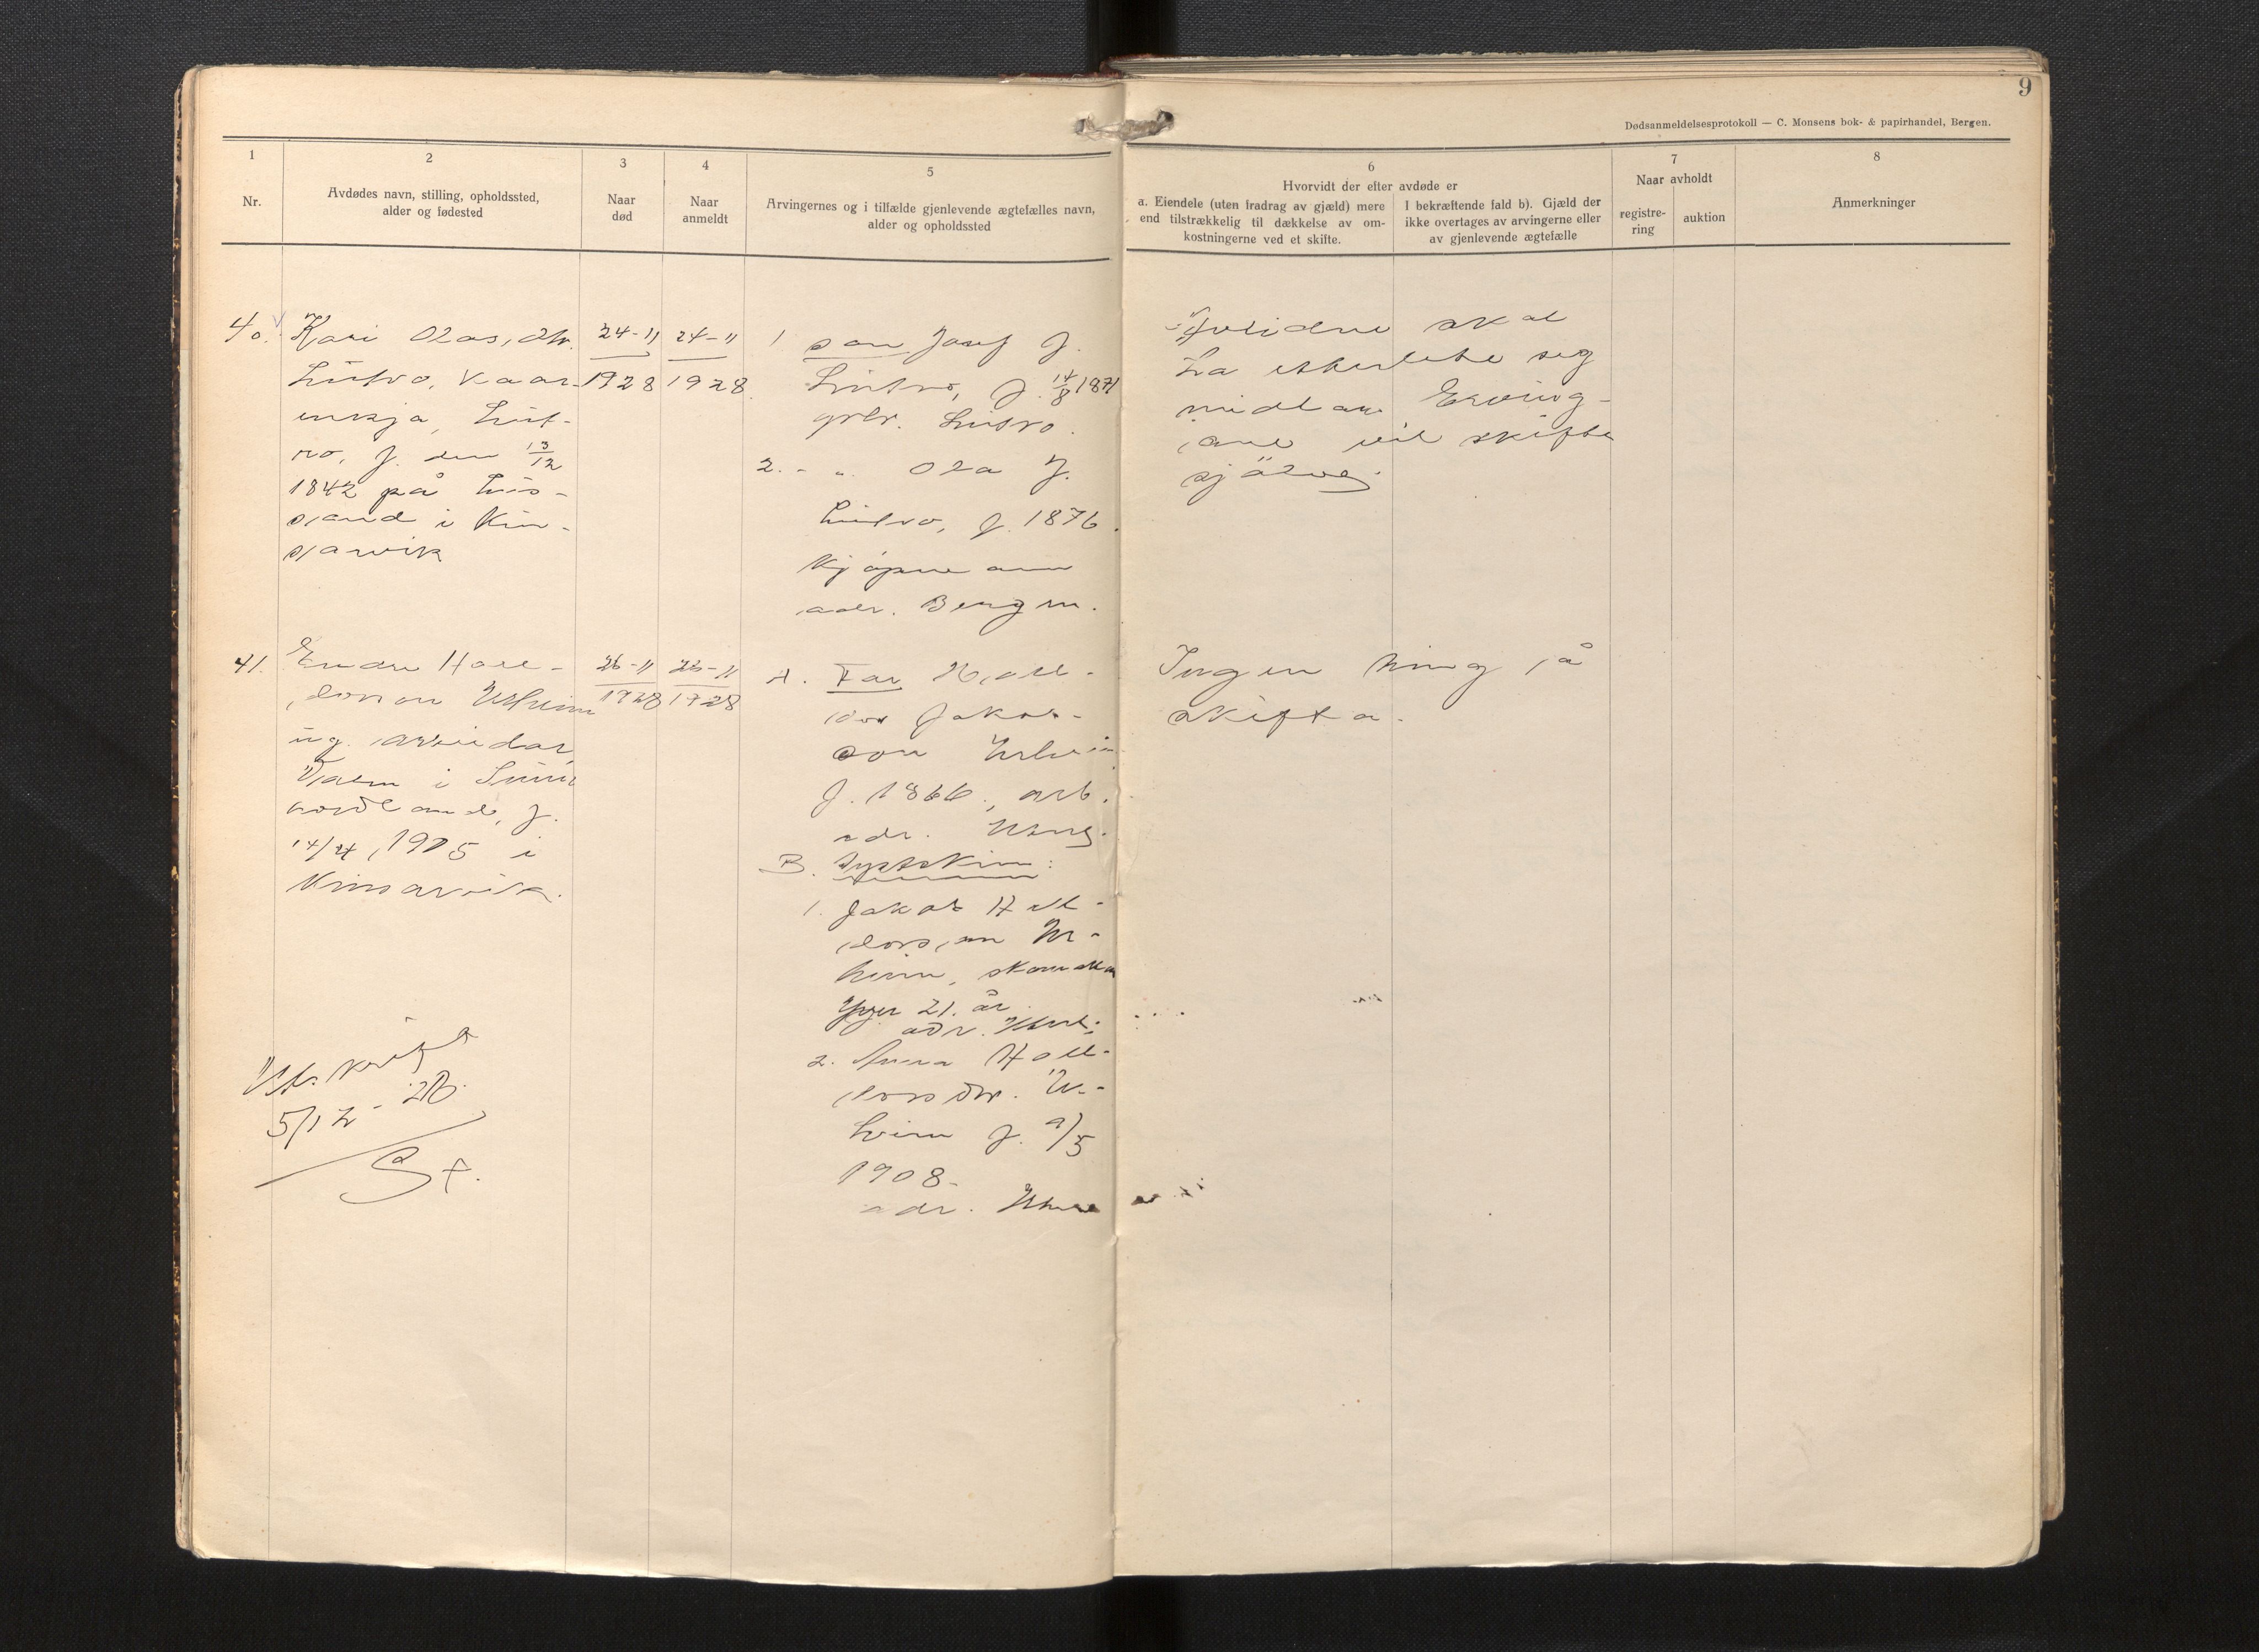 9
Dødsanmeldelsesprotokoll — C. Monsens bok- & papirhandel, Bergen.
1
Nr.
2
Avdødes navn, stilling, opholdssted,
alder og fødested
3
Naar
død
4
Naar
anmeldt
5
Arvingernes og i tilfælde gjenlevende ægtefælles navn,
alder og opholdssted
6
Hvorvidt der efter avdøde er
a. Eiendele (uten fradrag av gjæld) mere
end tilstrækkelig til dækkelse av om-
kostningerne ved et skifte.
I bekræftende fald b). Gjæld der
ikke overtages av arvingerne eller
av gjenlevende ægtefælle
7
Naar avholdt
registre-
ring
auktion
8
Anmerkninger
40.
Kari Olasdtr.
Lutro, kaar-
enkja, Lut-
ro, f. den 13/12
1842 på Lus-
sand i Kin-
sarvik
24-11
1928
24-11
1928
1 son Josef J.
Lutro, f. 14/8 1871
grbr. Lutro.
2. - " Ola J.
Lutro, f. 1876.
Kjøpmann
adr. Bergen.
skal
ha etterlete seg
midlar. Erving-
ane vil skifte
sjølve.
41.
Endre Hall-
dorson Urheim
ug. arbeidar,
i Sunn
hordland, f.
14/4 1905 i
Kinsarvik.
26-11
1928
28-11
1928
A. Far Hall-
dor Jakob-
son Urheim
f. 1866, arb.
adr.
B. Syskin:
1. Jakob Hall-
dorson Ur-
heim,
yver 21. år
adr.
2. Anna Hall-
dorsdtr. Ur-
heim f. 9/5
1908.
adr.
Ingen ting å
skifta.
5/12 - 28.
St.